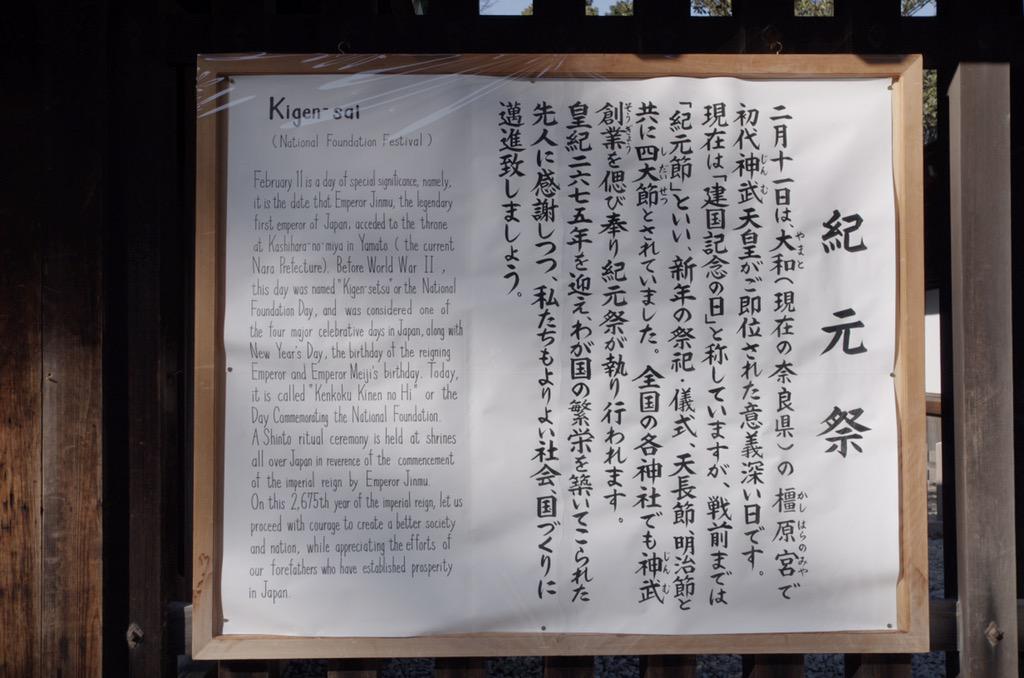 Kigen-sai
(National Foundation Festival)
February 11 is a day of special significance, namely,
it is the date that Emperor Jinmu, the legendary
first emperor of Japan, acceded to the throne
at Kashihara-no-miya in Yamato (the current
Nara Prefecture). Before World War II,
this day was named "Kigen-setsu" or the National
Foundation Day, and was considered one of
the four major celebrative days in Japan, along with
New Year's Day, the birthday of the reigning
Emperor and Emperor Meiji's birthday. Today,
it is called "Kenkoku Kinen no Hi" or the
Day Commemorating the National Foundation.
A Shinto ritual ceremony is held at shrines
all over Japan in reverence of the commencement
of the imperial reign by Emperor Jinmu.
On this 2,675th year of the imperial reign, let us
proceed with courage to create a better society
and nation, while appreciating the efforts of
our forefathers who have established prosperity
in Japan.
紀元祭
二月十一日は、大和(現在の奈良県)の橿原宮で
やまと
かしはらのみや
初代神武天皇がご即位された意義深い日です。
じんむ
現在は「建国記念の日」と称していますが、戦前までは
「紀元節」といい、新年の祭祀・儀式、天長節、明治節と
共に四大節とされていました。全国の各神社でも神武
したいせつ
じんむ
創業を偲び奉り紀元祭が執り行われます。
そうぎょう
皇紀二六七五年を迎え、わが国の繁栄を築いてこられた
先人に感謝しつつ、私たちもよりよい社会、国づくりに
邁進致しましょう。